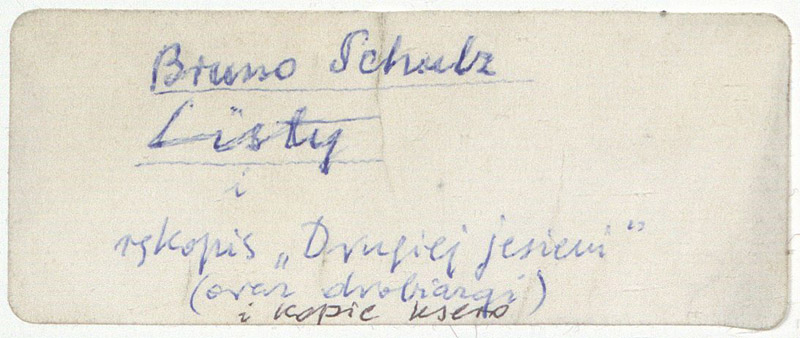 Bruno Schulz
Listy
i
rękopis „Drugiej jesieni”
(oraz drobiazgi)
i kopie ksero